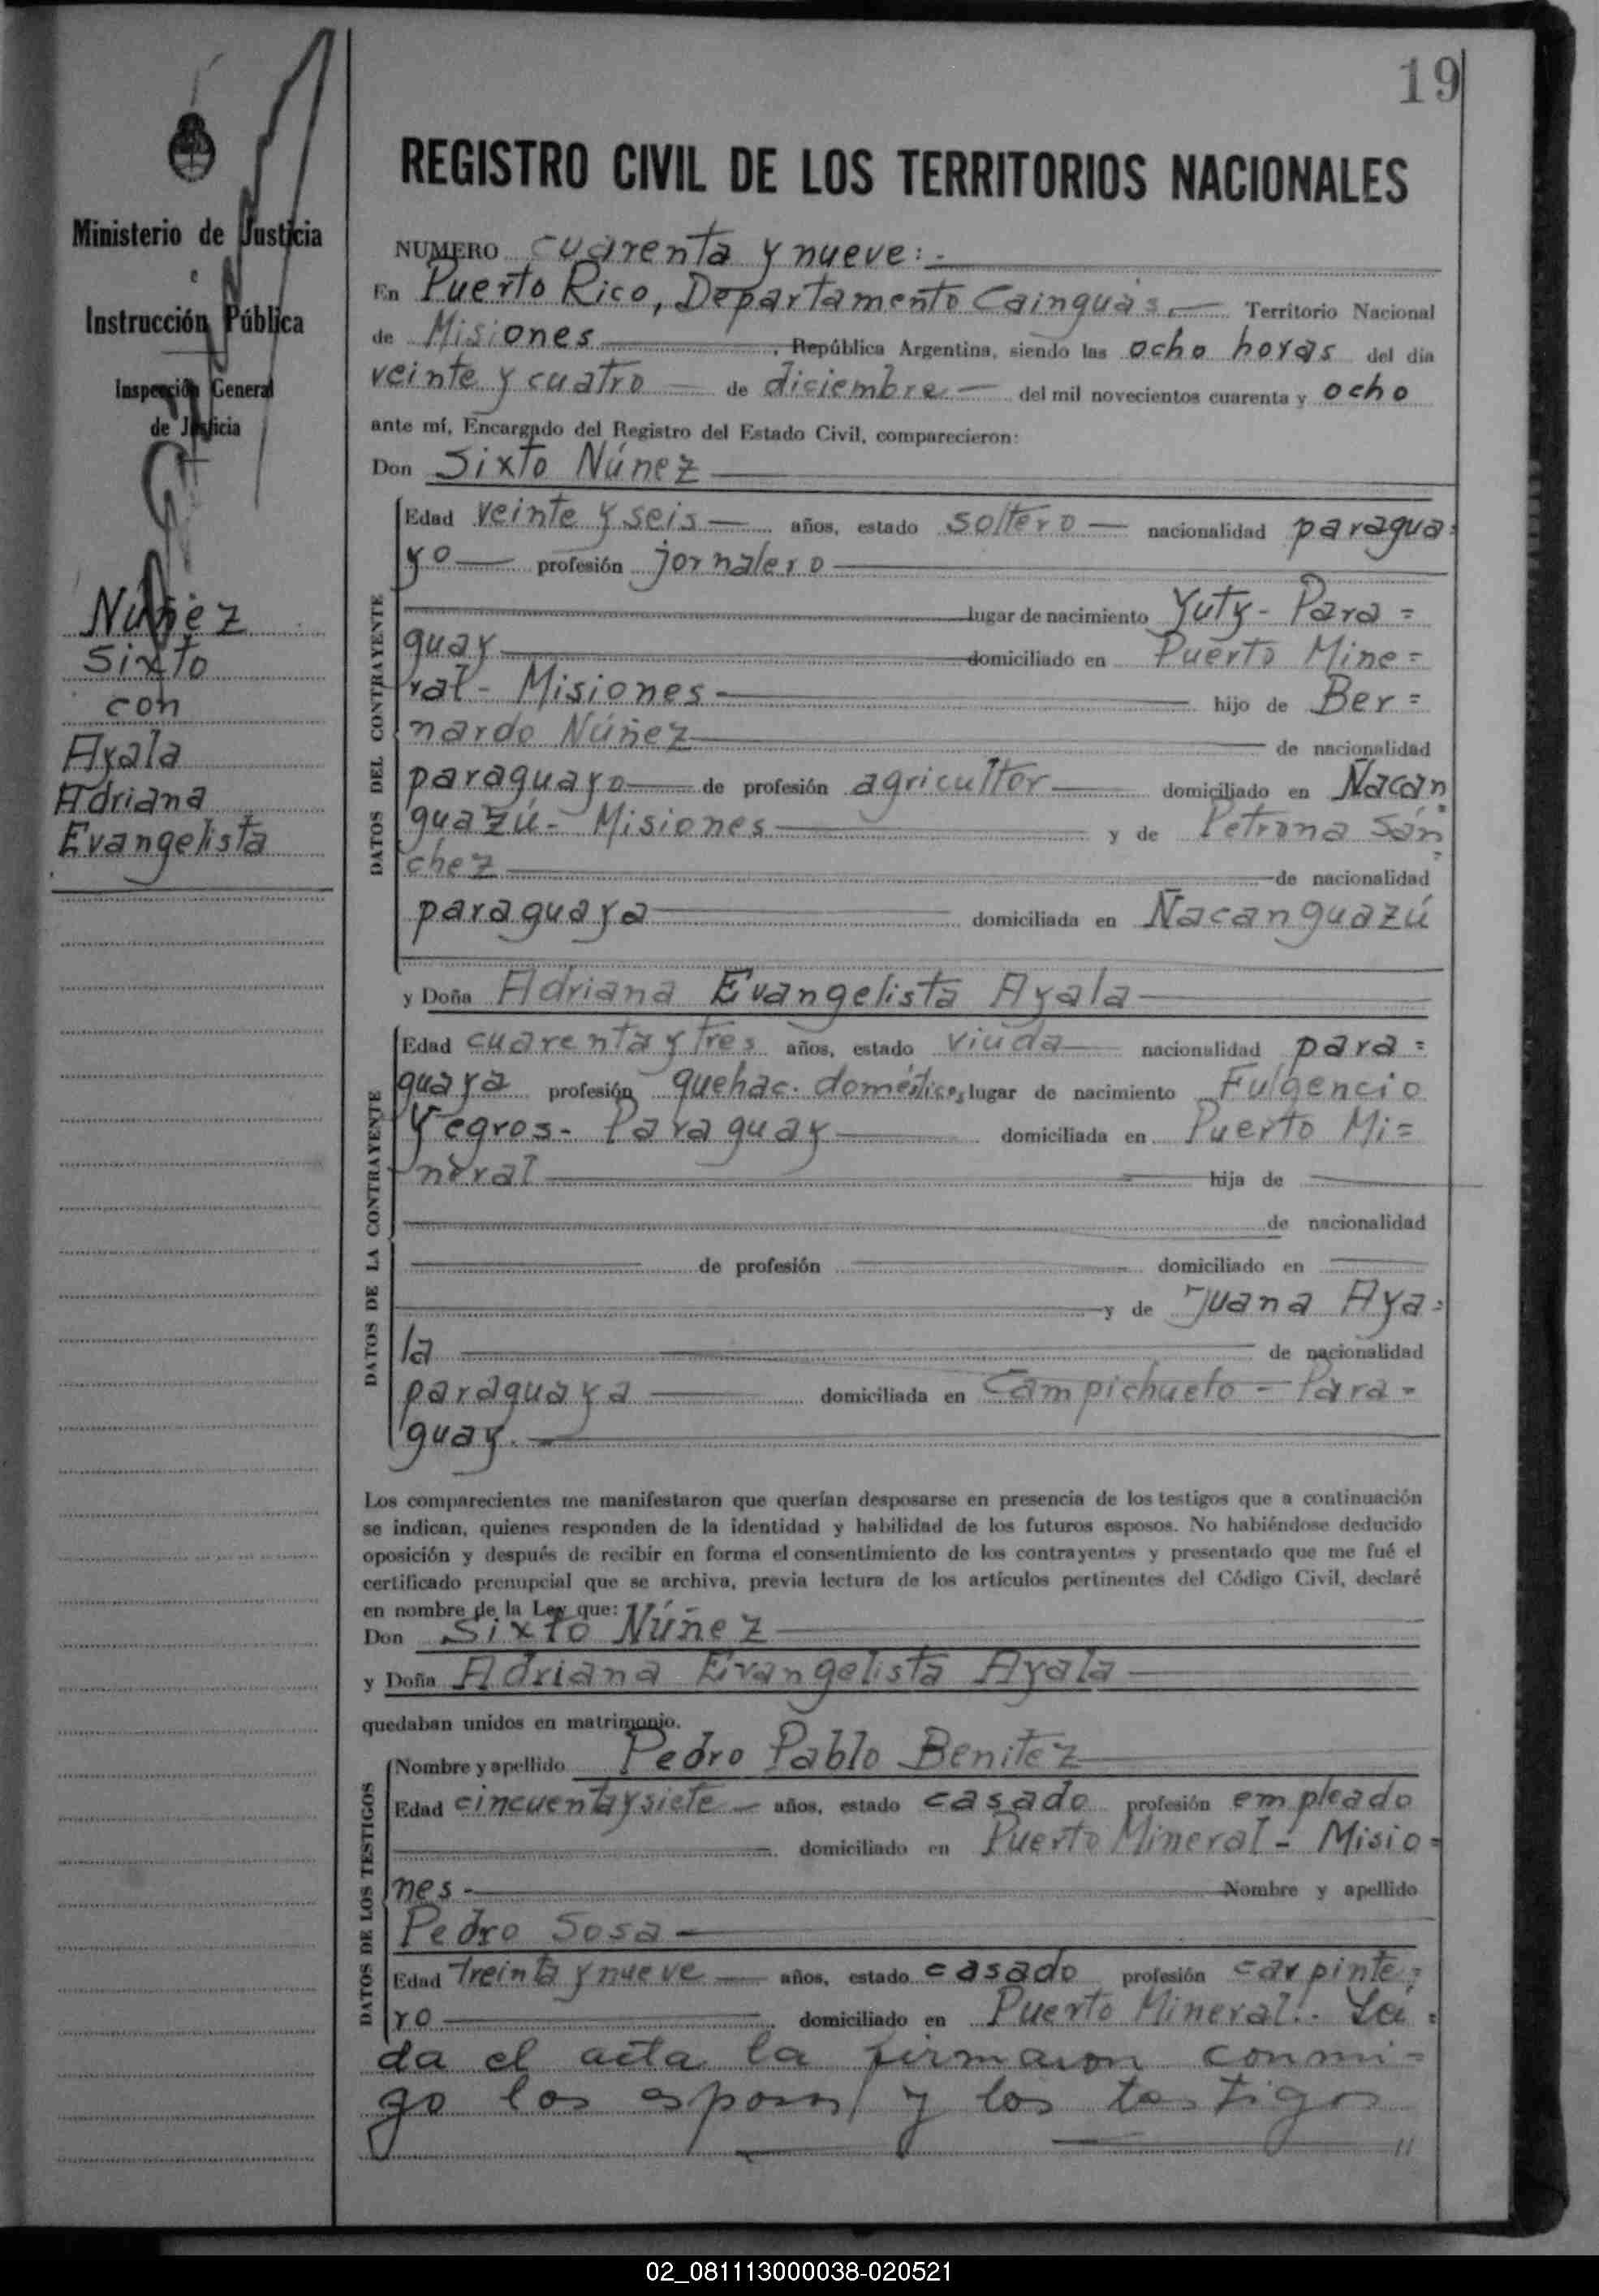 19
Ministerio de Justicia
e
Instrucción Pública
Inspección General
de Justicia
Núñez
Sixto
con
Ayala
Adriana
Evangelista
REGISTRO CIVIL DE LOS TERRITORIOS NACIONALES
NUMERO cuarenta y nueve:
En Puerto Rico, Departamento Cainguás Territorio Nacional
de Misiones , República Argentina, siendo las ocho horas del día
veinte y cuatro de diciembre del mil novecientos cuarenta y ocho
ante mí, Encargado del Registro del Estado Civil, comparecieron:
Don Sixto Núnez
DATOS DEL CONTRAYENTE
Edad veinte y seis años, estado soltero nacionalidad paragua=
yo profesión jornalero
lugar de nacimiento Yuty - Para=
guay domiciliado en Puerto Mine=
ral - Misiones hijo de Ber=
nardo Núñez de nacionalidad
paraguayo de profesión agricultor domiciliado en Ñacan=
guazú - Misiones y de Petrona Sán=
chez de nacionalidad
paraguaya domiciliada en Ñacanguazú
y Doña Adriana Evangelista Ayala
DATOS DE LA CONTRAYENTE
Edad cuarenta y tres años, estado viuda nacionalidad para=
guaya profesión quehac. domésticos lugar de nacimiento Fulgencio
Yegros - Paraguay domiciliada en Puerto Mi=
neral hija de
de nacionalidad
de profesión domiciliado en
y de Juana Aya=
la de nacionalidad
paraguaya domiciliada en Campichuelo - Para=
guay.
Los comparecientes me manifestaron que querían desposarse en presencia de los testigos que a continuación
se indican, quienes responden de la identidad y habilidad de los futuros esposos. No habiéndose deducido
oposición y después de recibir en forma el consentimiento de los contrayentes y presentado que me fué el
certificado prenupcial que se archiva, previa lectura de los artículos pertinentes del Código Civil, declaré
en nombre de la Ley que:
Don Sixto Núñez
y Doña Adriana Evangelista Ayala
quedaban unidos en matrimonio.
DATOS DE LOS TESTIGOS
Nombre y apellido Pedro Pablo Benitez
Edad cincuenta y siete años, estado casado profesión empleado
domiciliado en Puerto Mineral - Misio=
nes - Nombre y apellido
Pedro Sosa
Edad treinta y nueve años, estado casado profesión carpinte=
ro domiciliado en Puerto Mineral.- Leí=
da el acta la firmaron conmi=
go los esposos y los testigos
02_081113000038-020521